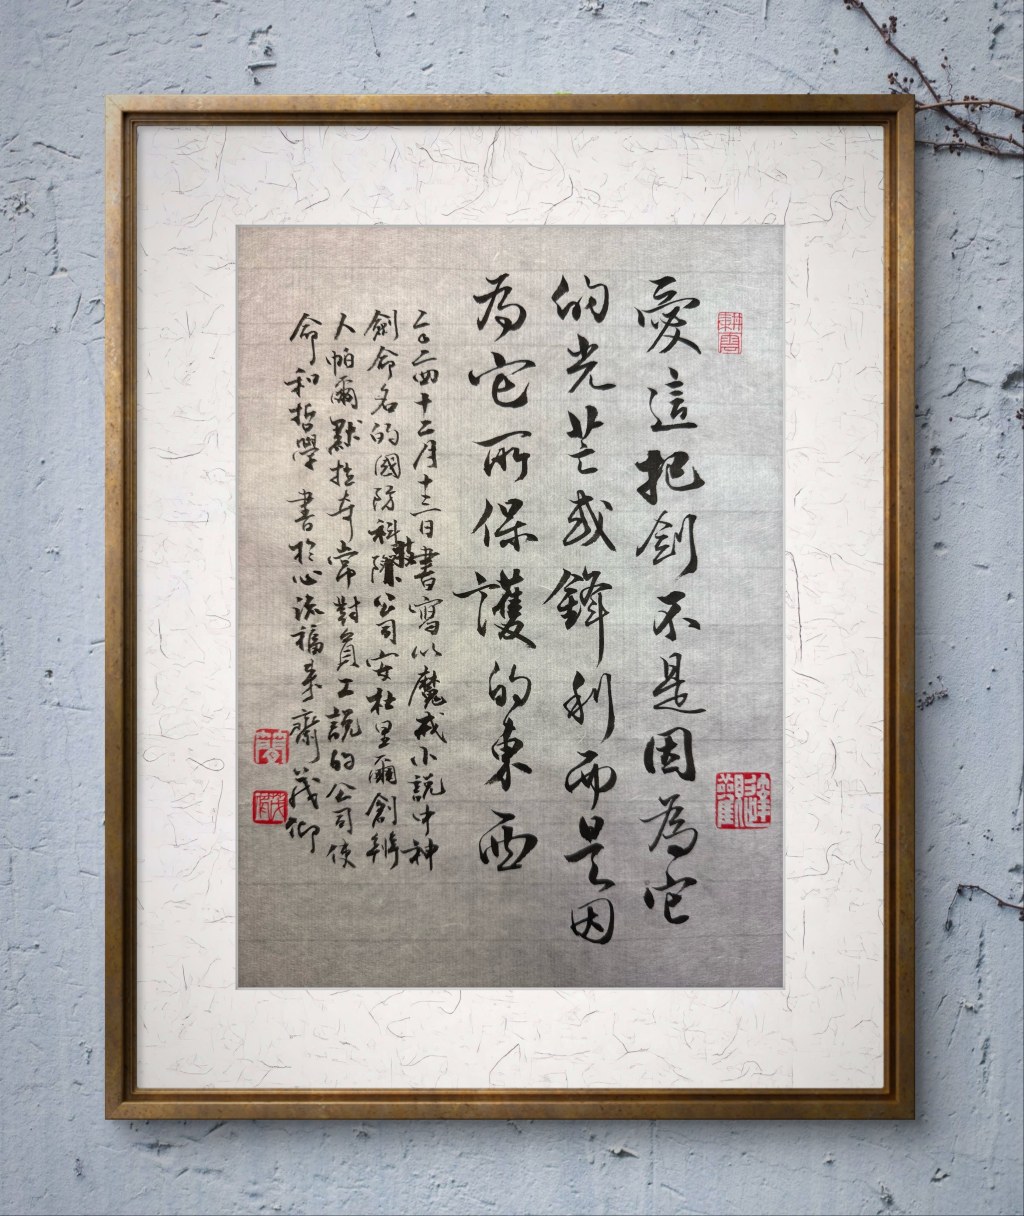 愛這把劍不是因為它
的光芒或鋒利而是因
為它所保護的東西
二〇二四十二月十三日書寫以魔戒小說中神
劍命名的國防科技公司安杜里爾創辦
人帕爾默拉奇常對員工說的公司使
命和哲學 書於心流福來齋 茂仰